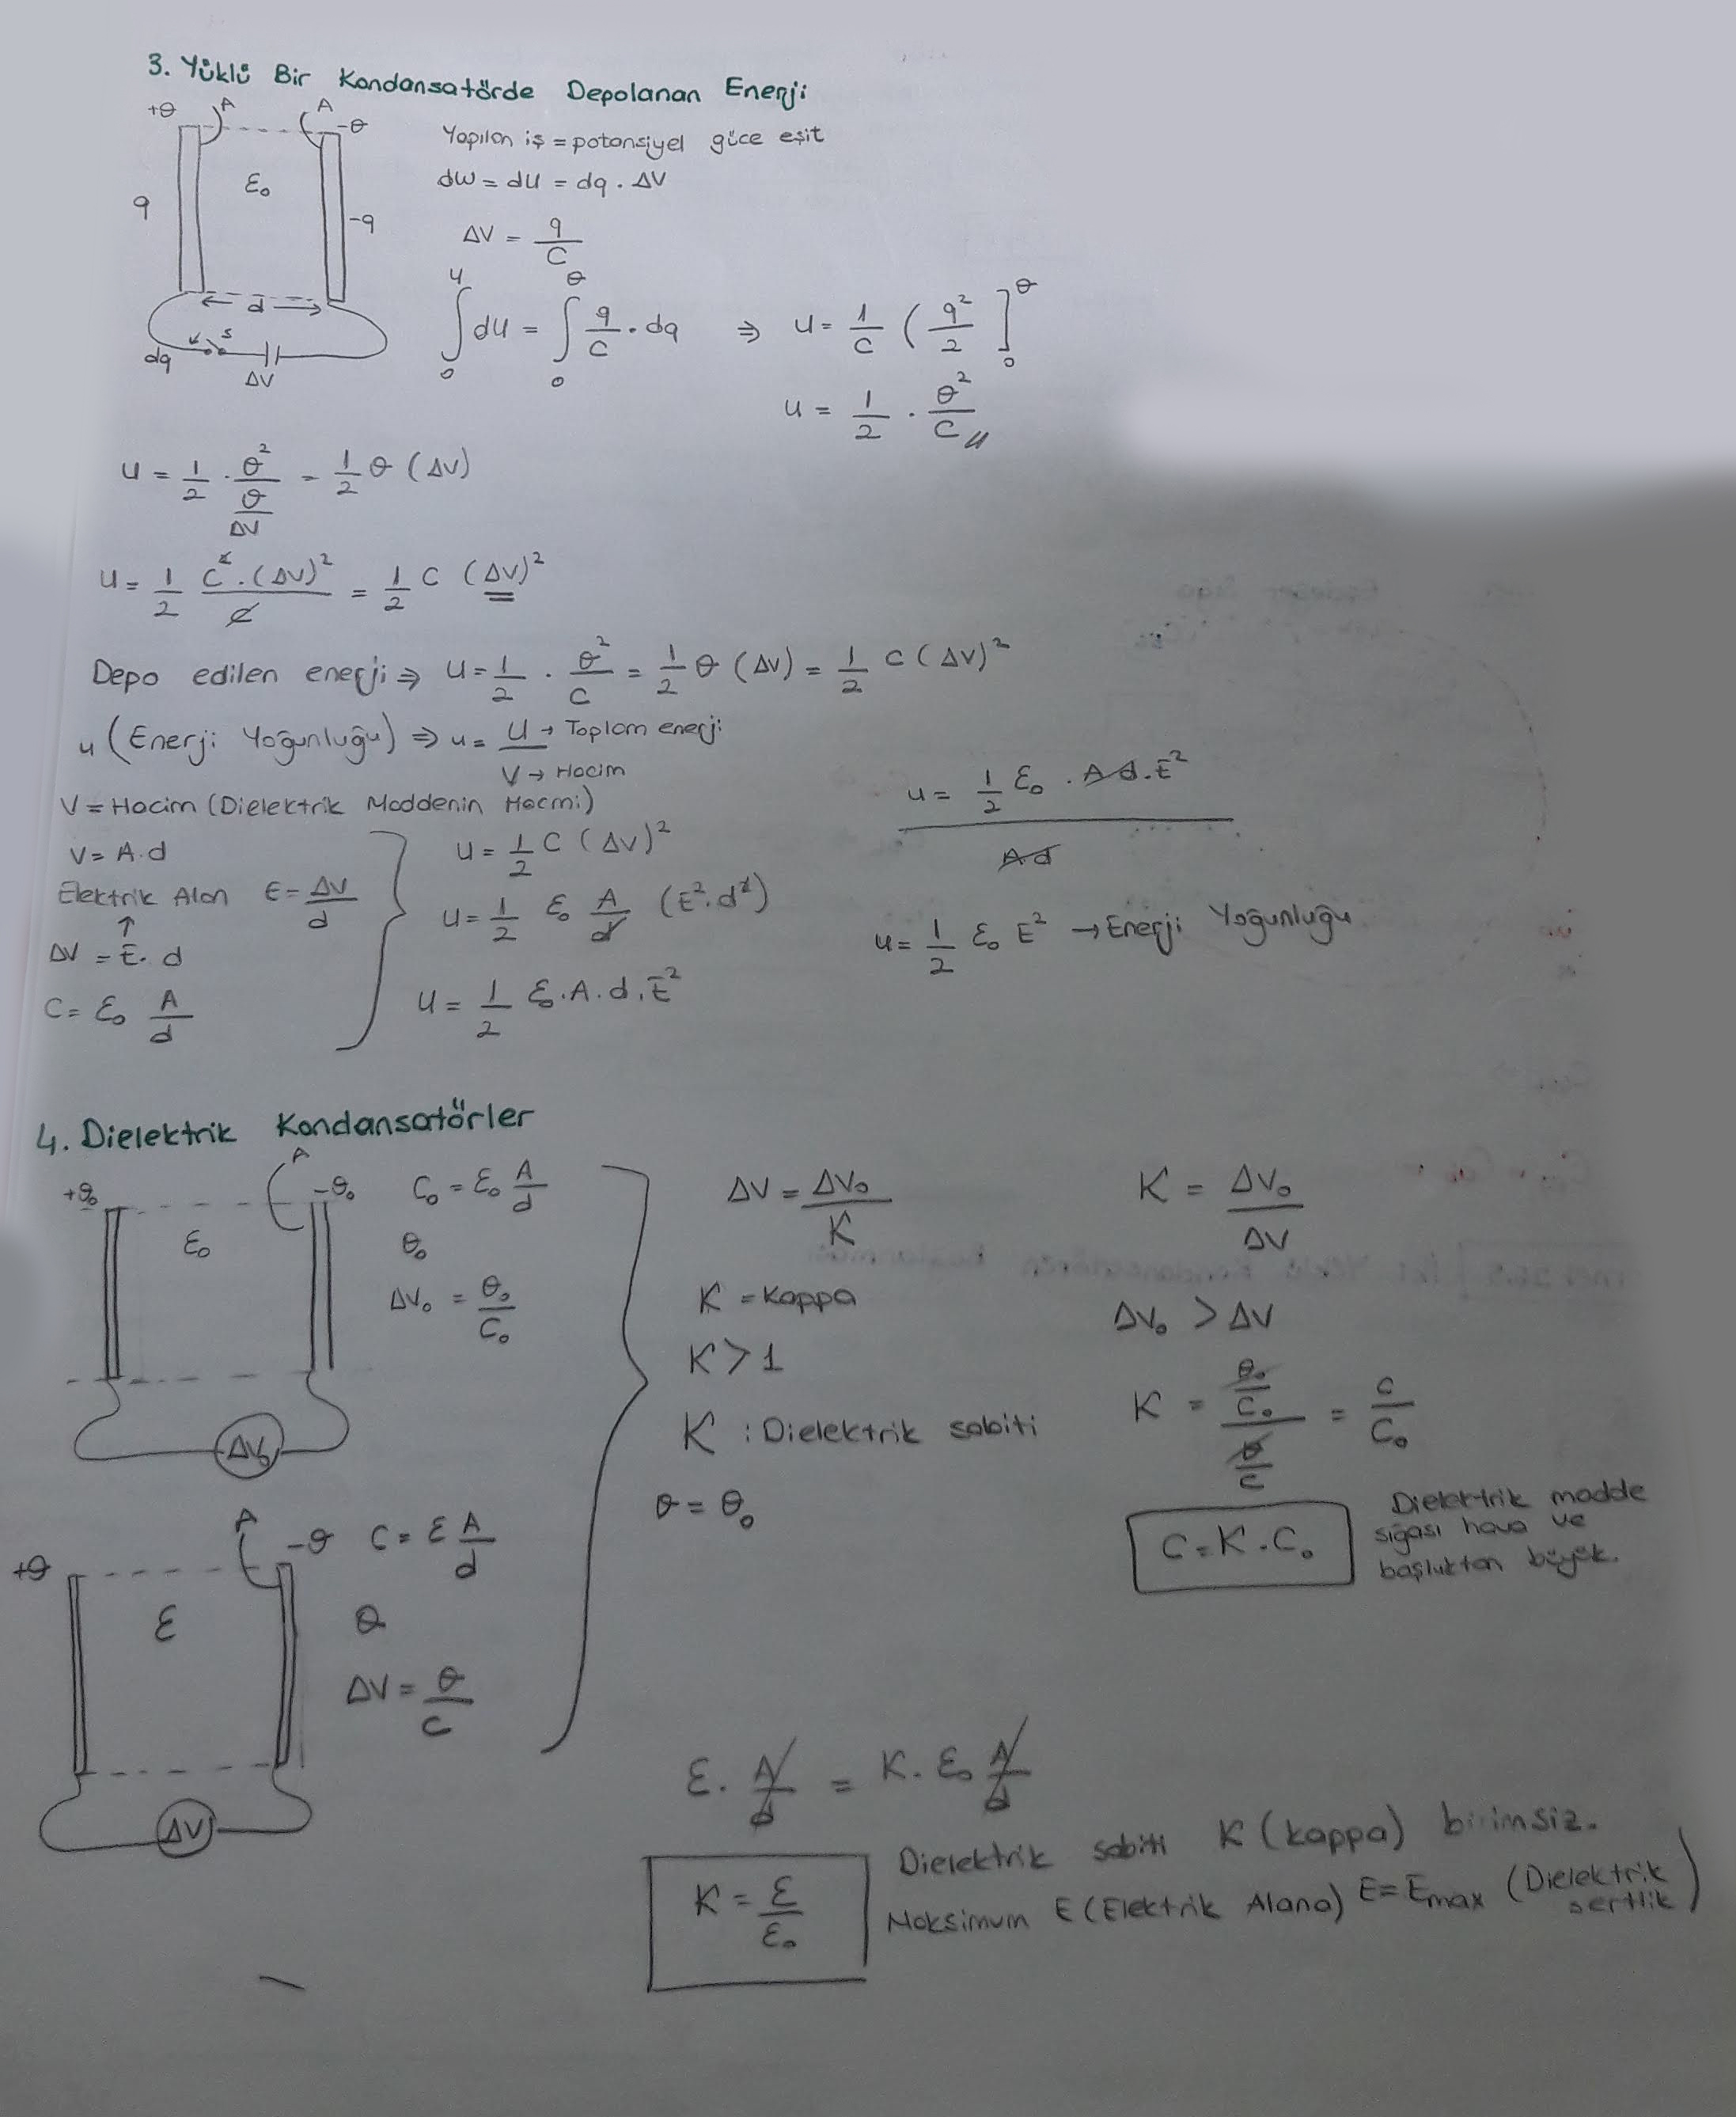 3. Yüklü Bir Kondansatörde Depolanan Enerji
+Q A A -Q
Yapılan iş = potansiyel güce eşit
ε₀
dW = dU = dq . ΔV
q -q
ΔV = q/C
d
∫₀ᵁ dU = ∫₀^Q q/C . dq ⇒ U = 1/C (q²/2]₀^Q
dq s
ΔV
U = 1/2 . Q²/C //
U = 1/2 . Q²/(Q/ΔV) = 1/2 Q (ΔV)
U = 1/2 C² . (ΔV)²/C = 1/2 C (ΔV)²
Depo edilen enerji ⇒ U = 1/2 . Q²/C = 1/2 Q (ΔV) = 1/2 C (ΔV)²
u (Enerji Yoğunluğu) ⇒ u = U → Toplam enerji
V → Hacim
V = Hacim (Dielektrik Maddenin Hacmi)
V = A.d
Elektrik Alan E = ΔV/d
↑
ΔV = E . d
C = ε₀ A/d
U = 1/2 C (ΔV)²
U = 1/2 ε₀ A/d (E² . d²)
U = 1/2 ε₀ . A . d . E²
u = 1/2 ε₀ . A d . E²
A d
u = 1/2 ε₀ E² → Enerji Yoğunluğu
4. Dielektrik Kondansatörler
+Q₀ A -Q₀
ε₀
ΔV₀
C₀ = ε₀ A/d
Q₀
ΔV₀ = Q₀/C₀
+Q A -Q
ε
ΔV
C = ε A/d
Q
ΔV = Q/C
ΔV = ΔV₀/K
K = Kappa
K > 1
K : Dielektrik sabiti
Q = Q₀
K = ΔV₀/ΔV
ΔV₀ > ΔV
K = (Q₀/C₀)/(Q/C) = C/C₀
C = K . C₀
Dielektrik madde
sığası hava ve
boşluktan büyük.
ε . A/d = K . ε₀ A/d
K = ε/ε₀
Dielektrik sabiti K (kappa) birimsiz.
Maksimum E (Elektrik Alana) E = Emax (Dielektrik
sertlik)